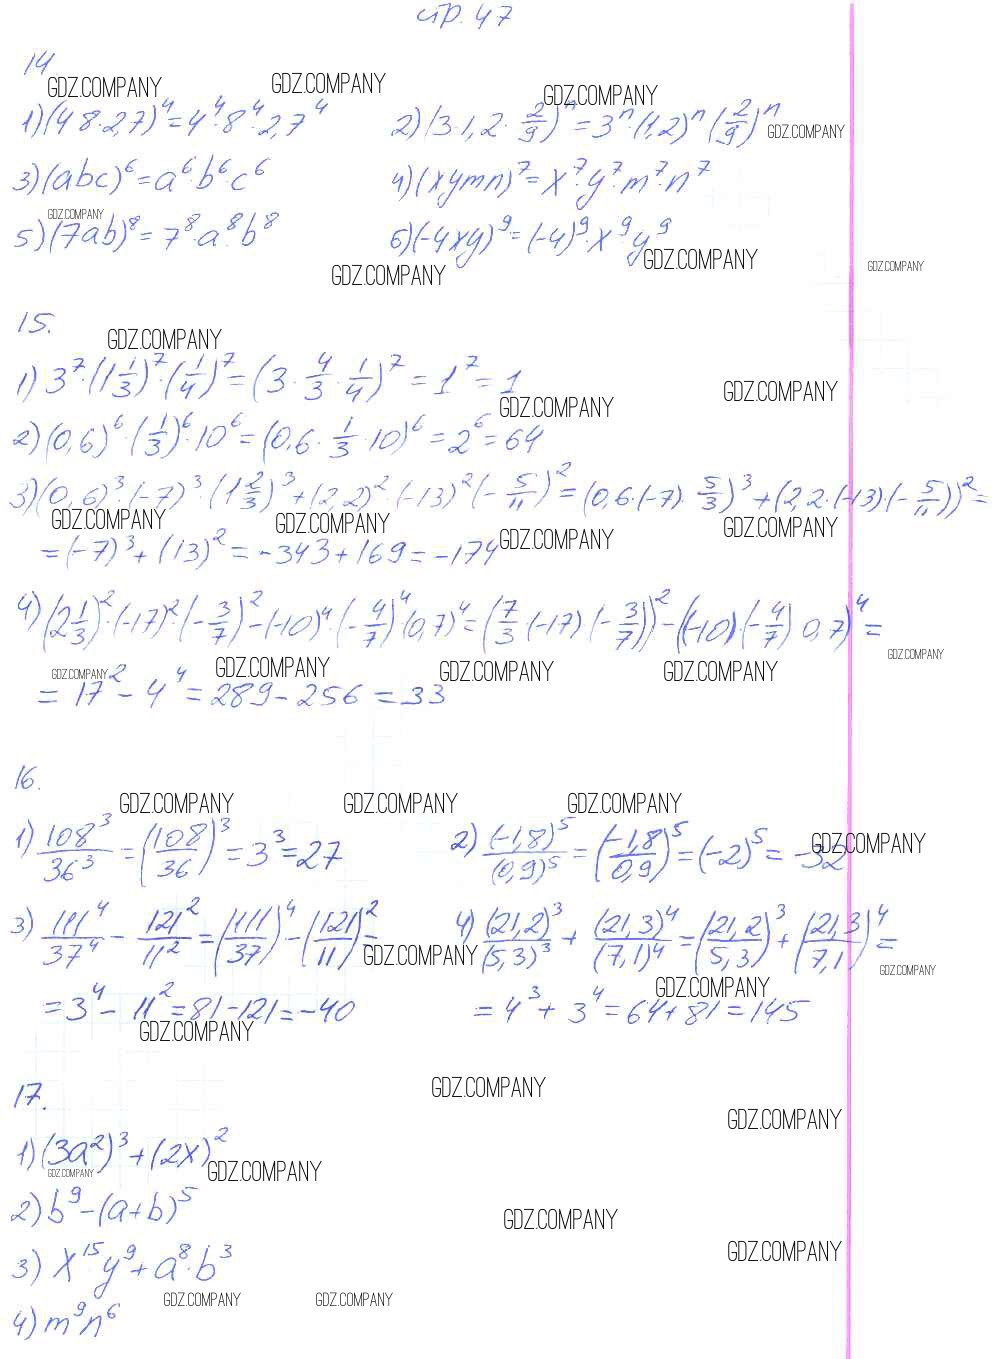 стр. 47
14
GDZ.COMPANY GDZ.COMPANY GDZ.COMPANY
1) (4·8·2,7)⁴ = 4⁴·8⁴·2,7⁴ 2) (3·1,2·2/9)ⁿ = 3ⁿ·(1,2)ⁿ·(2/9)ⁿ
GDZ.COMPANY
3) (abc)⁶ = a⁶·b⁶·c⁶ 4) (xymn)⁷ = x⁷·y⁷·m⁷·n⁷
GDZ.COMPANY
5) (7ab)⁸ = 7⁸·a⁸·b⁸ 6) (-4xy)⁹ = (-4)⁹·x⁹·y⁹
GDZ.COMPANY GDZ.COMPANY GDZ.COMPANY
15.
GDZ.COMPANY
1) 3⁷·(1 1/3)⁷·(1/4)⁷ = (3·4/3·1/4)⁷ = 1⁷ = 1
GDZ.COMPANY GDZ.COMPANY
2) (0,6)⁶·(1/3)⁶·10⁶ = (0,6·1/3·10)⁶ = 2⁶ = 64
3) (0,6)³·(-7)³·(1 2/3)³ + (2,2)²·(-13)²·(-5/11)² = (0,6·(-7)·5/3)³ + (2,2·(-13)·(-5/11))² =
GDZ.COMPANY GDZ.COMPANY GDZ.COMPANY GDZ.COMPANY
= (-7)³ + (13)² = -343 + 169 = -174
4) (2 1/3)²·(-17)²·(-3/7)² - (-10)⁴·(-4/7)⁴·(0,7)⁴ = (7/3·(-17)·(-3/7))² - ((-10)·(-4/7)·0,7)⁴ =
GDZ.COMPANY GDZ.COMPANY GDZ.COMPANY GDZ.COMPANY GDZ.COMPANY
= 17² - 4⁴ = 289 - 256 = 33
16.
GDZ.COMPANY GDZ.COMPANY GDZ.COMPANY
1) 108³/36³ = (108/36)³ = 3³ = 27 2) (-1,8)⁵/(0,9)⁵ = (-1,8/0,9)⁵ = (-2)⁵ = -32
GDZ.COMPANY
3) 111⁴/37⁴ - 121²/11² = (111/37)⁴ - (121/11)² = 4) (21,2)³/(5,3)³ + (21,3)⁴/(7,1)⁴ = (21,2/5,3)³ + (21,3/7,1)⁴ =
GDZ.COMPANY GDZ.COMPANY GDZ.COMPANY
= 3⁴ - 11² = 81 - 121 = -40 = 4³ + 3⁴ = 64 + 81 = 145
GDZ.COMPANY
17.
GDZ.COMPANY GDZ.COMPANY
1) (3a²)³ + (2x)²
GDZ.COMPANY GDZ.COMPANY
2) b⁹ - (a+b)⁵
GDZ.COMPANY
3) x¹⁵·y⁹ + a⁸·b³
GDZ.COMPANY
GDZ.COMPANY GDZ.COMPANY
4) m⁹n⁶